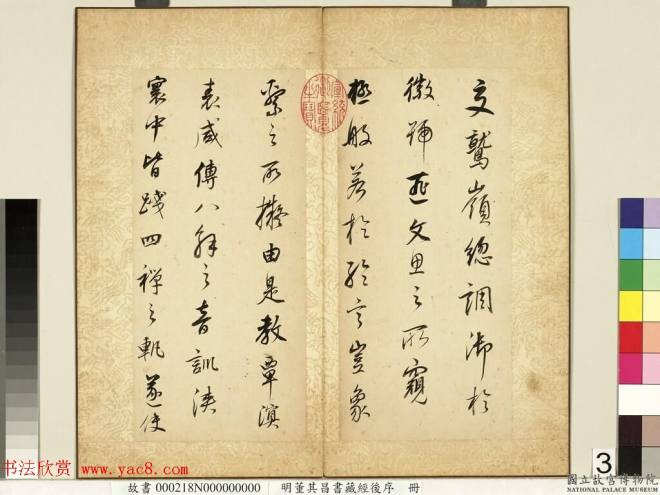 文鷲嶺總調御於
徽號匪文思之所窺
極般若於綸言豈象
繫之所擬由是教覃溟
表咸傳八解之音訓浹
寰中皆踐四禪之軌遂使
書法欣賞
http://www.yac8.com
故書 000218N000000000 明董其昌書藏經後序 冊
3
國立故宮博物院
NATIONAL PALACE MUSEUM